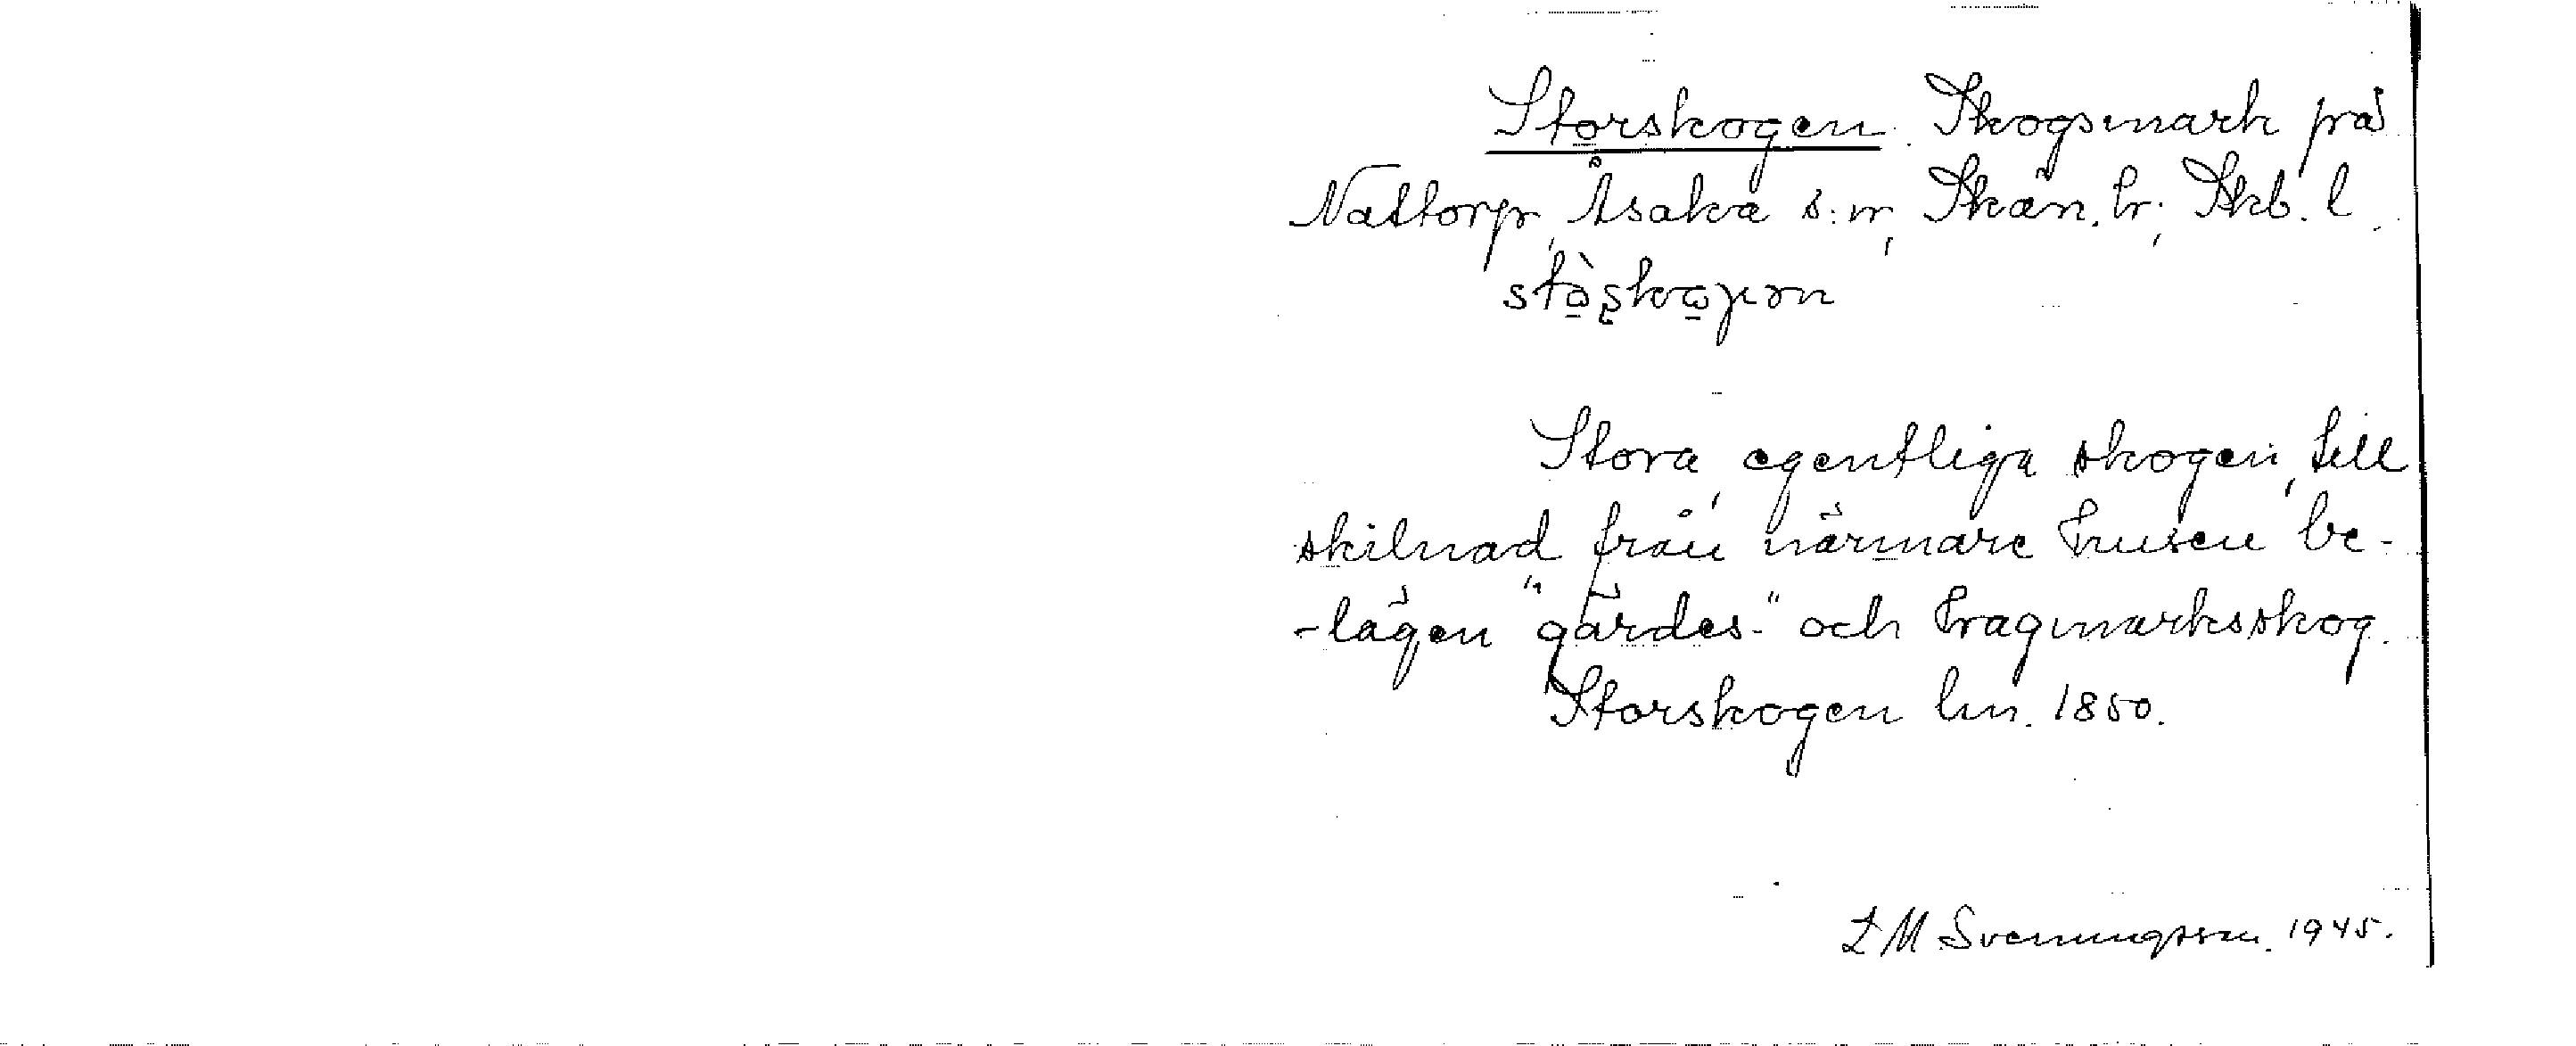 Storskogen. Skogsmark på
Nattorp, Åsaka s:n, Skån. hr, Skb. l.
Stora, egentliga skogen, till
skilnad från närmare husen be-
-lägen "gärdes-" och hagmarksskog.
Storskogen hn. 1850.
L M Svenungsson. 1945.